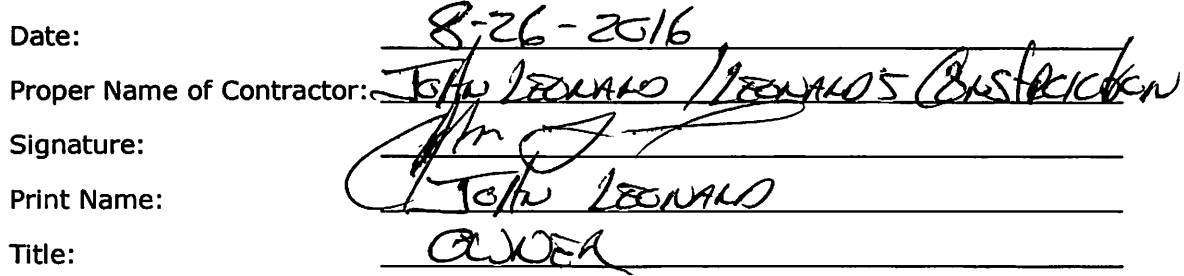 Date: 8-26-2016
Proper Name of Contractor: JOHN LEONARD / LEONARDS CONSTRUCTION
Signature:
Print Name: JOHN LEONARD
Title: OWNER